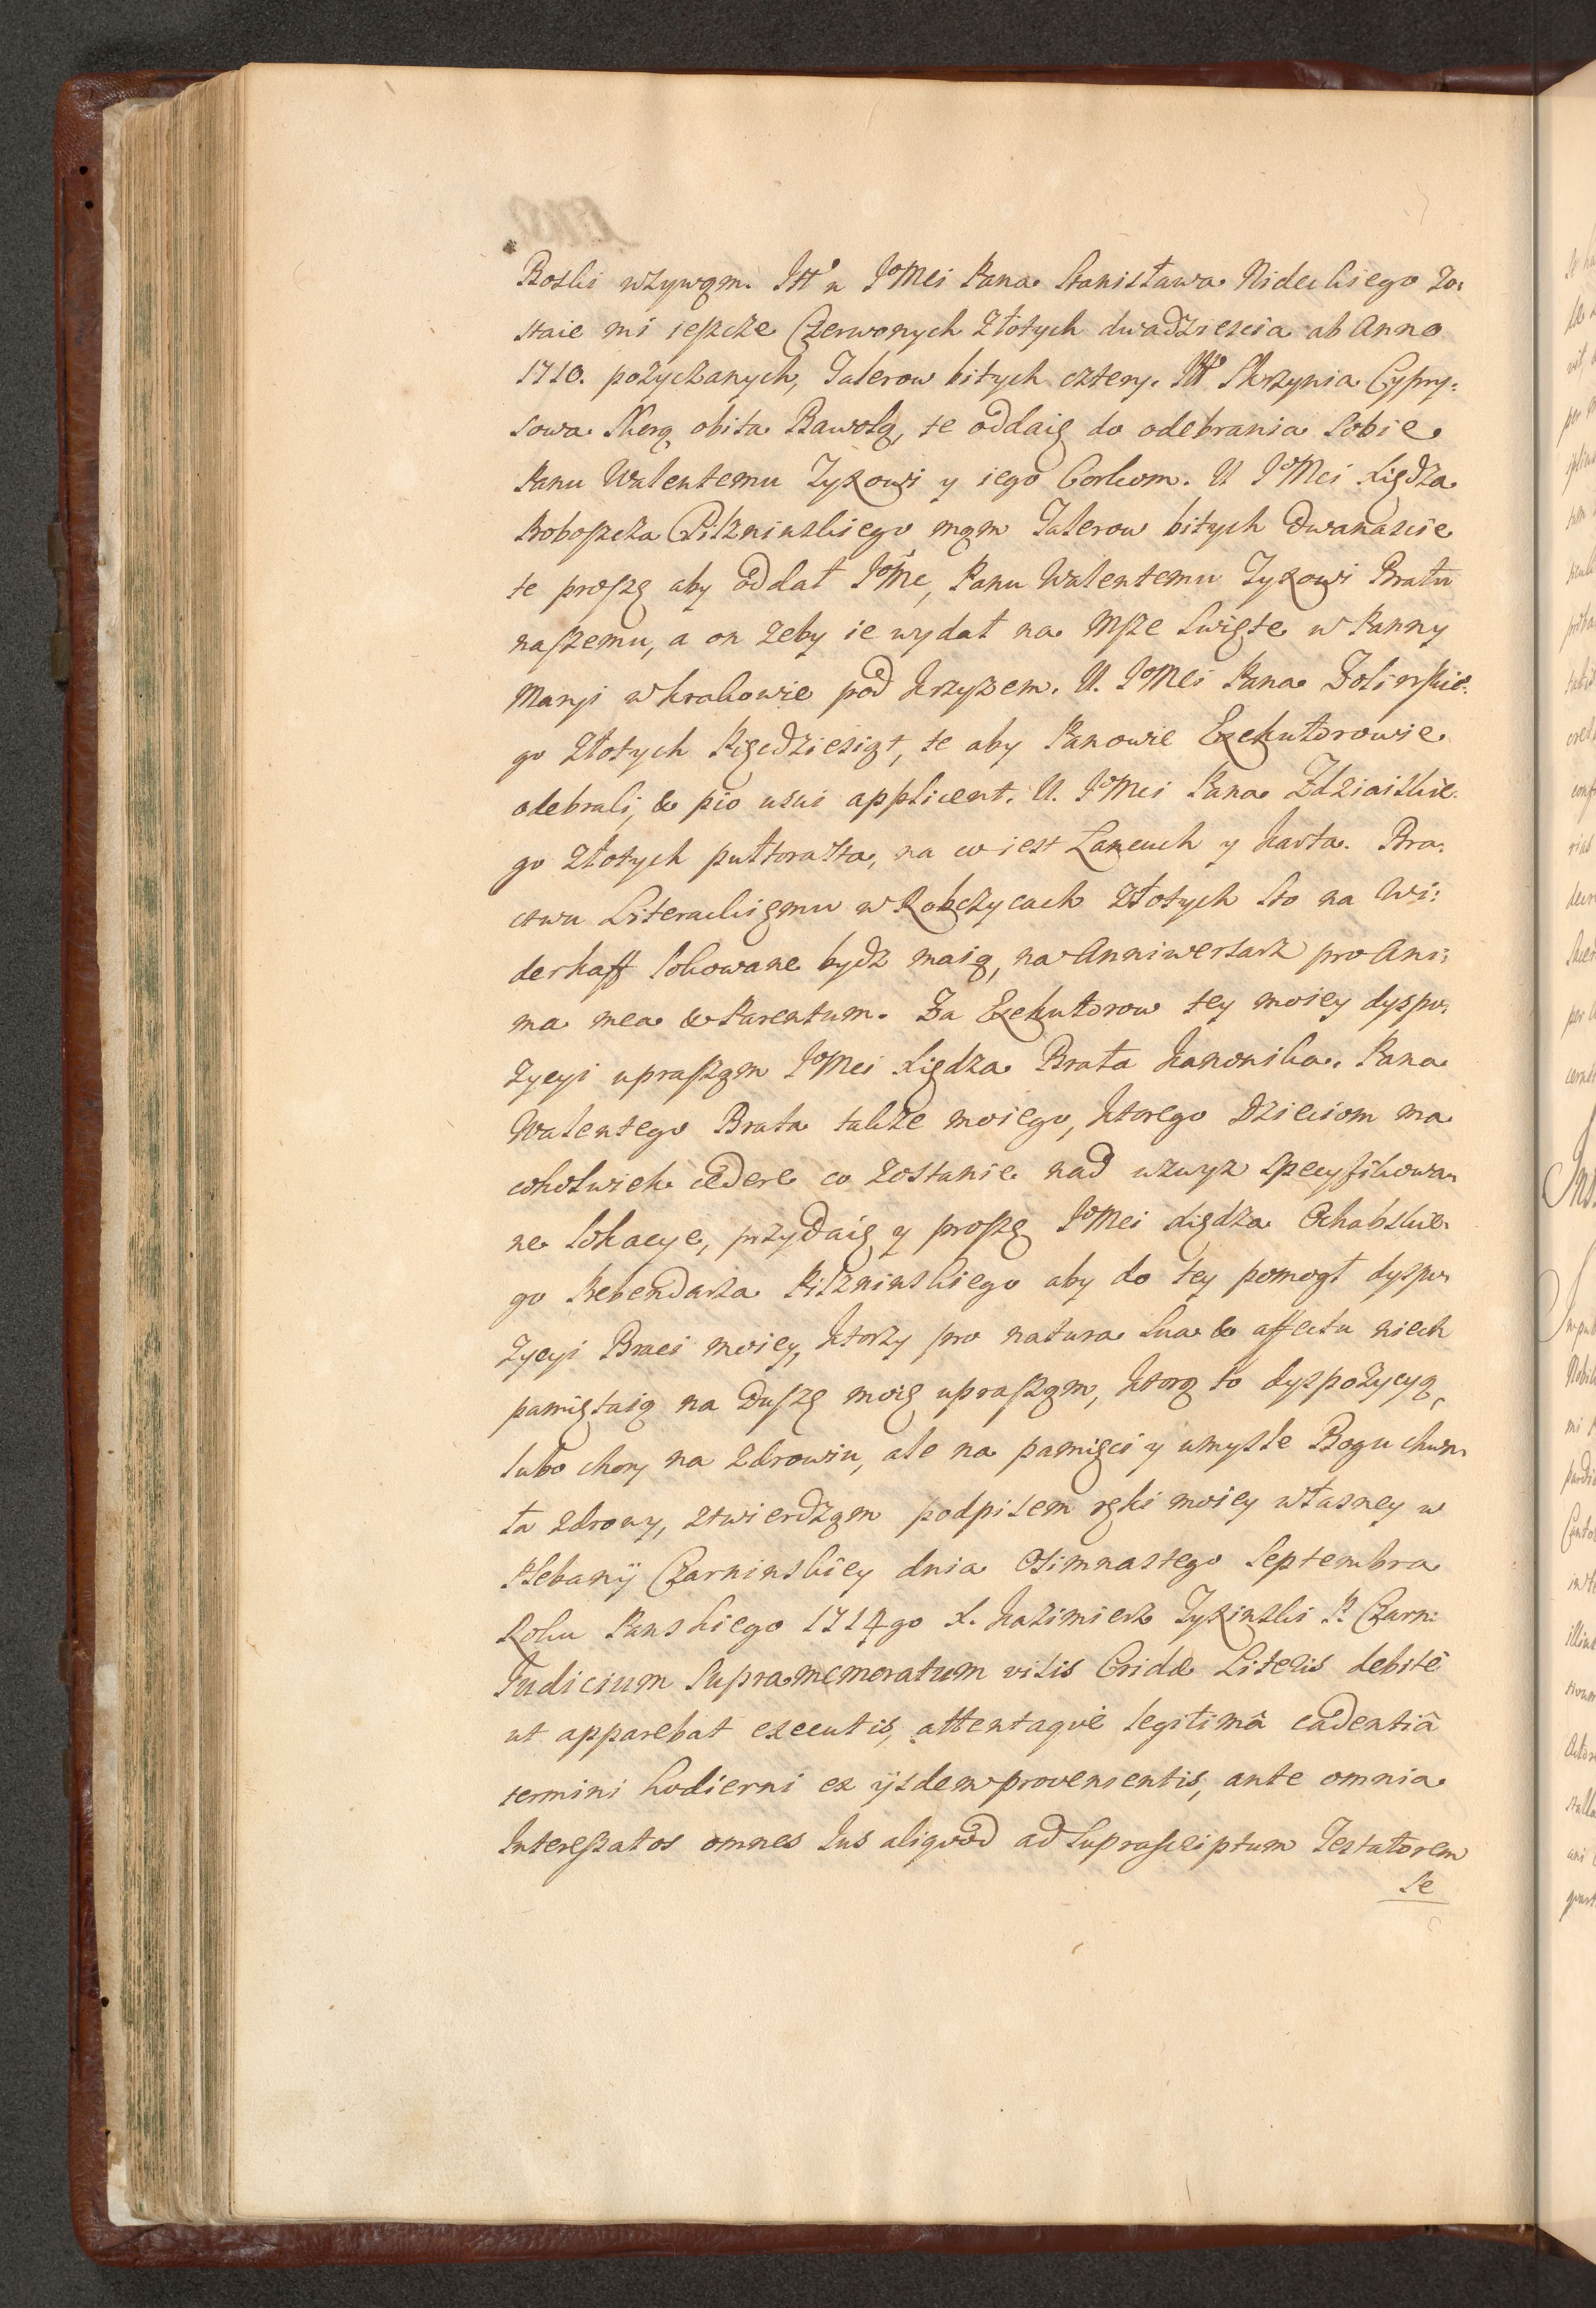 Boski wzywąm. Itt° u JoMci Pana Stanisława Nideckiego Zo:
staie mi ieszcze Czerwonych Złotych dwadziescia ab Anno
1710. pożyczanych, Talerow bitych cztery. Itt° Skrzynia Cypry:
sowa Skorą obita Bawolą, te oddaię do odebrania sobie
Panu Walentemu Zyzowi y iego Corkom. U JoMci Xiędza
Proboszcza Pilzninskiego mąm Talerow bitych dwanascie
te proszę aby oddał JoMc, Panu Walentemu Zyzowi Bratu
naszemu, a on zeby ie wydał na Msze Swięte w Panny
Maryi w Krakowie pod Krzyzem. U. JoMci Pana Dolinskie:
go Złotych Pięcdziesiąt, te aby Panowie Exekutorowie
odebrali, & pio usui applicent. U. JoMci Pana Zdziaiskie:
go Złotych pułtorasta, na co iest Lancuch y Karta. Bra:
ctwu Literackięmu w Robczycach Złotych sto na Wi:
derkaff lokowane bydz maią, na Anniwersarz pro Ani:
ma mea & Parentum. Za Exekutorow tey moiey dyspo:
zycyi uprasząm JoMci Xiędza Brata Kanonika, Pana
Walentego Brata takze moiego, ktorego Dzieciom ma
cokolwiek cedere co zostanie nad wzwyz specyfikowa:
ne lokacye, przydaię y proszę JoMci Xiędza Ochabskie:
go Prebendarza Pilzninskiego aby do tey pomogł dyspo:
zycyi Braci moiey, ktorzy pro natura sua & affectu niech
pamiętaią na Duszę moię uprasząm, ktorą to dyspozycyą,
lubo chory na zdrowiu, ale na pamięci y umysle Bogu chwa:
ła zdrowy, ztwierdząm podpisem ręki moiey własney w
Plebanÿ Czarninskiey dnia Osimnastego Septembra
Roku Panskiego 1714go X. Kazimierz Zyzinski P. Czarn:
Judicium Supramemoratum visis Cridæ Literis debitè
ut apparebat executis, attentaquè legitimâ cadentiâ
termini hodierni ex ÿsdem provenientis, ante omnia
Interessatos omnes Jus aliquod ad Suprascriptum Testatorem
se